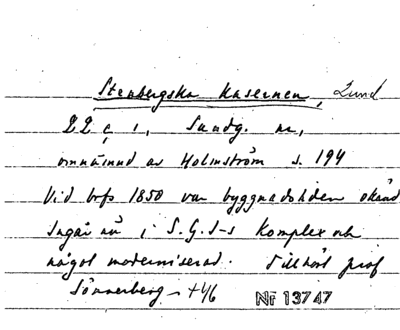 Stenbergska Kasernen, Lund
22 c 1, Sandg. nr,
omnämnd av Holmström s. 194
Vid brfs 1850 var byggnadstiden okänd
Ingår nu i S.G.I-s Komplex och
något moderniserad. Tillhört prof
Sönnerberg - +46
Nr 13747